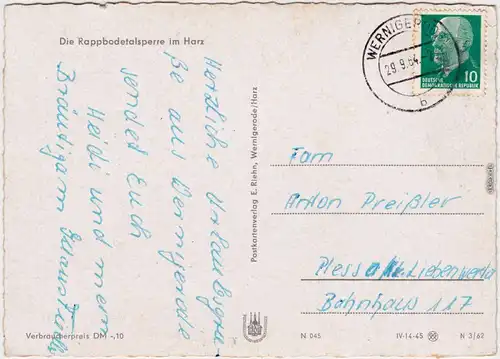 Die Rappbodetalsperre im Harz
Herzliche Urlaubsgrü-
ße aus Wernigerode
sendet Euch
Heidi und mein
Bräutigam
Verbraucherpreis DM -,10
Postkartenverlag E. Riehn, Wernigerode/Harz
WERNIGERODE
29.9.64
b
10
DEUTSCHE
DEMOKRATISCHE REPUBLIK
Fam
Anton Preißler
Plessa Kr. Liebenwerda
Bahnhaus 117
N 045
IV-14-45
N 3/62